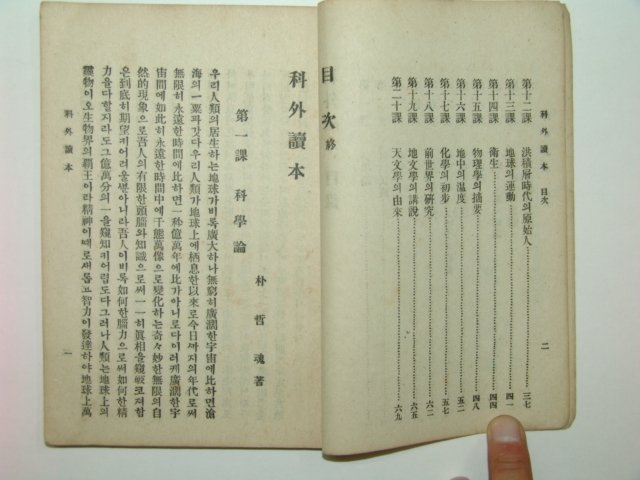 科外讀本 目次
二
第十二課 洪積層時代의原始人 三七
第十三課 地球의運動 四一
第十四課 衛生 四四
第十五課 物理學의摘要 四八
第十六課 地中의温度 五二
第十七課 化學의初步 五七
第十八課 前世界의硏究 六二
第十九課 地文學의講說 六五
第二十課 天文學의由來 六九
目次 終
科外讀本
朴哲魂著
第一課 科學論
우리人類의居生하는地球가비록廣大하나無窮히廣濶한宇宙에比하면滄
海의一粟과갓다우리人類가地球上에栖息한以來로今日까지의年代로써
無限히永遠한時間에比하면一秒億萬年에比가아니로다이러케廣濶한宇
宙間에如此히永遠한時間中에千態萬像으로變化하는奇々妙한無限의自
然的現象으로吾人의有限한頭腦와知識으로써一一히眞相을窺破코져함
은到底히期望키어려울뿐아니라吾人이비록如何한腦力으로써如何한精
力을다할지라도그億萬分의一을窺知키어렵도다그러나人類는地球上의
靈物이오生物界의覇王이라精神이때로새롭고智力이發達하야地球上萬
科外讀本
一